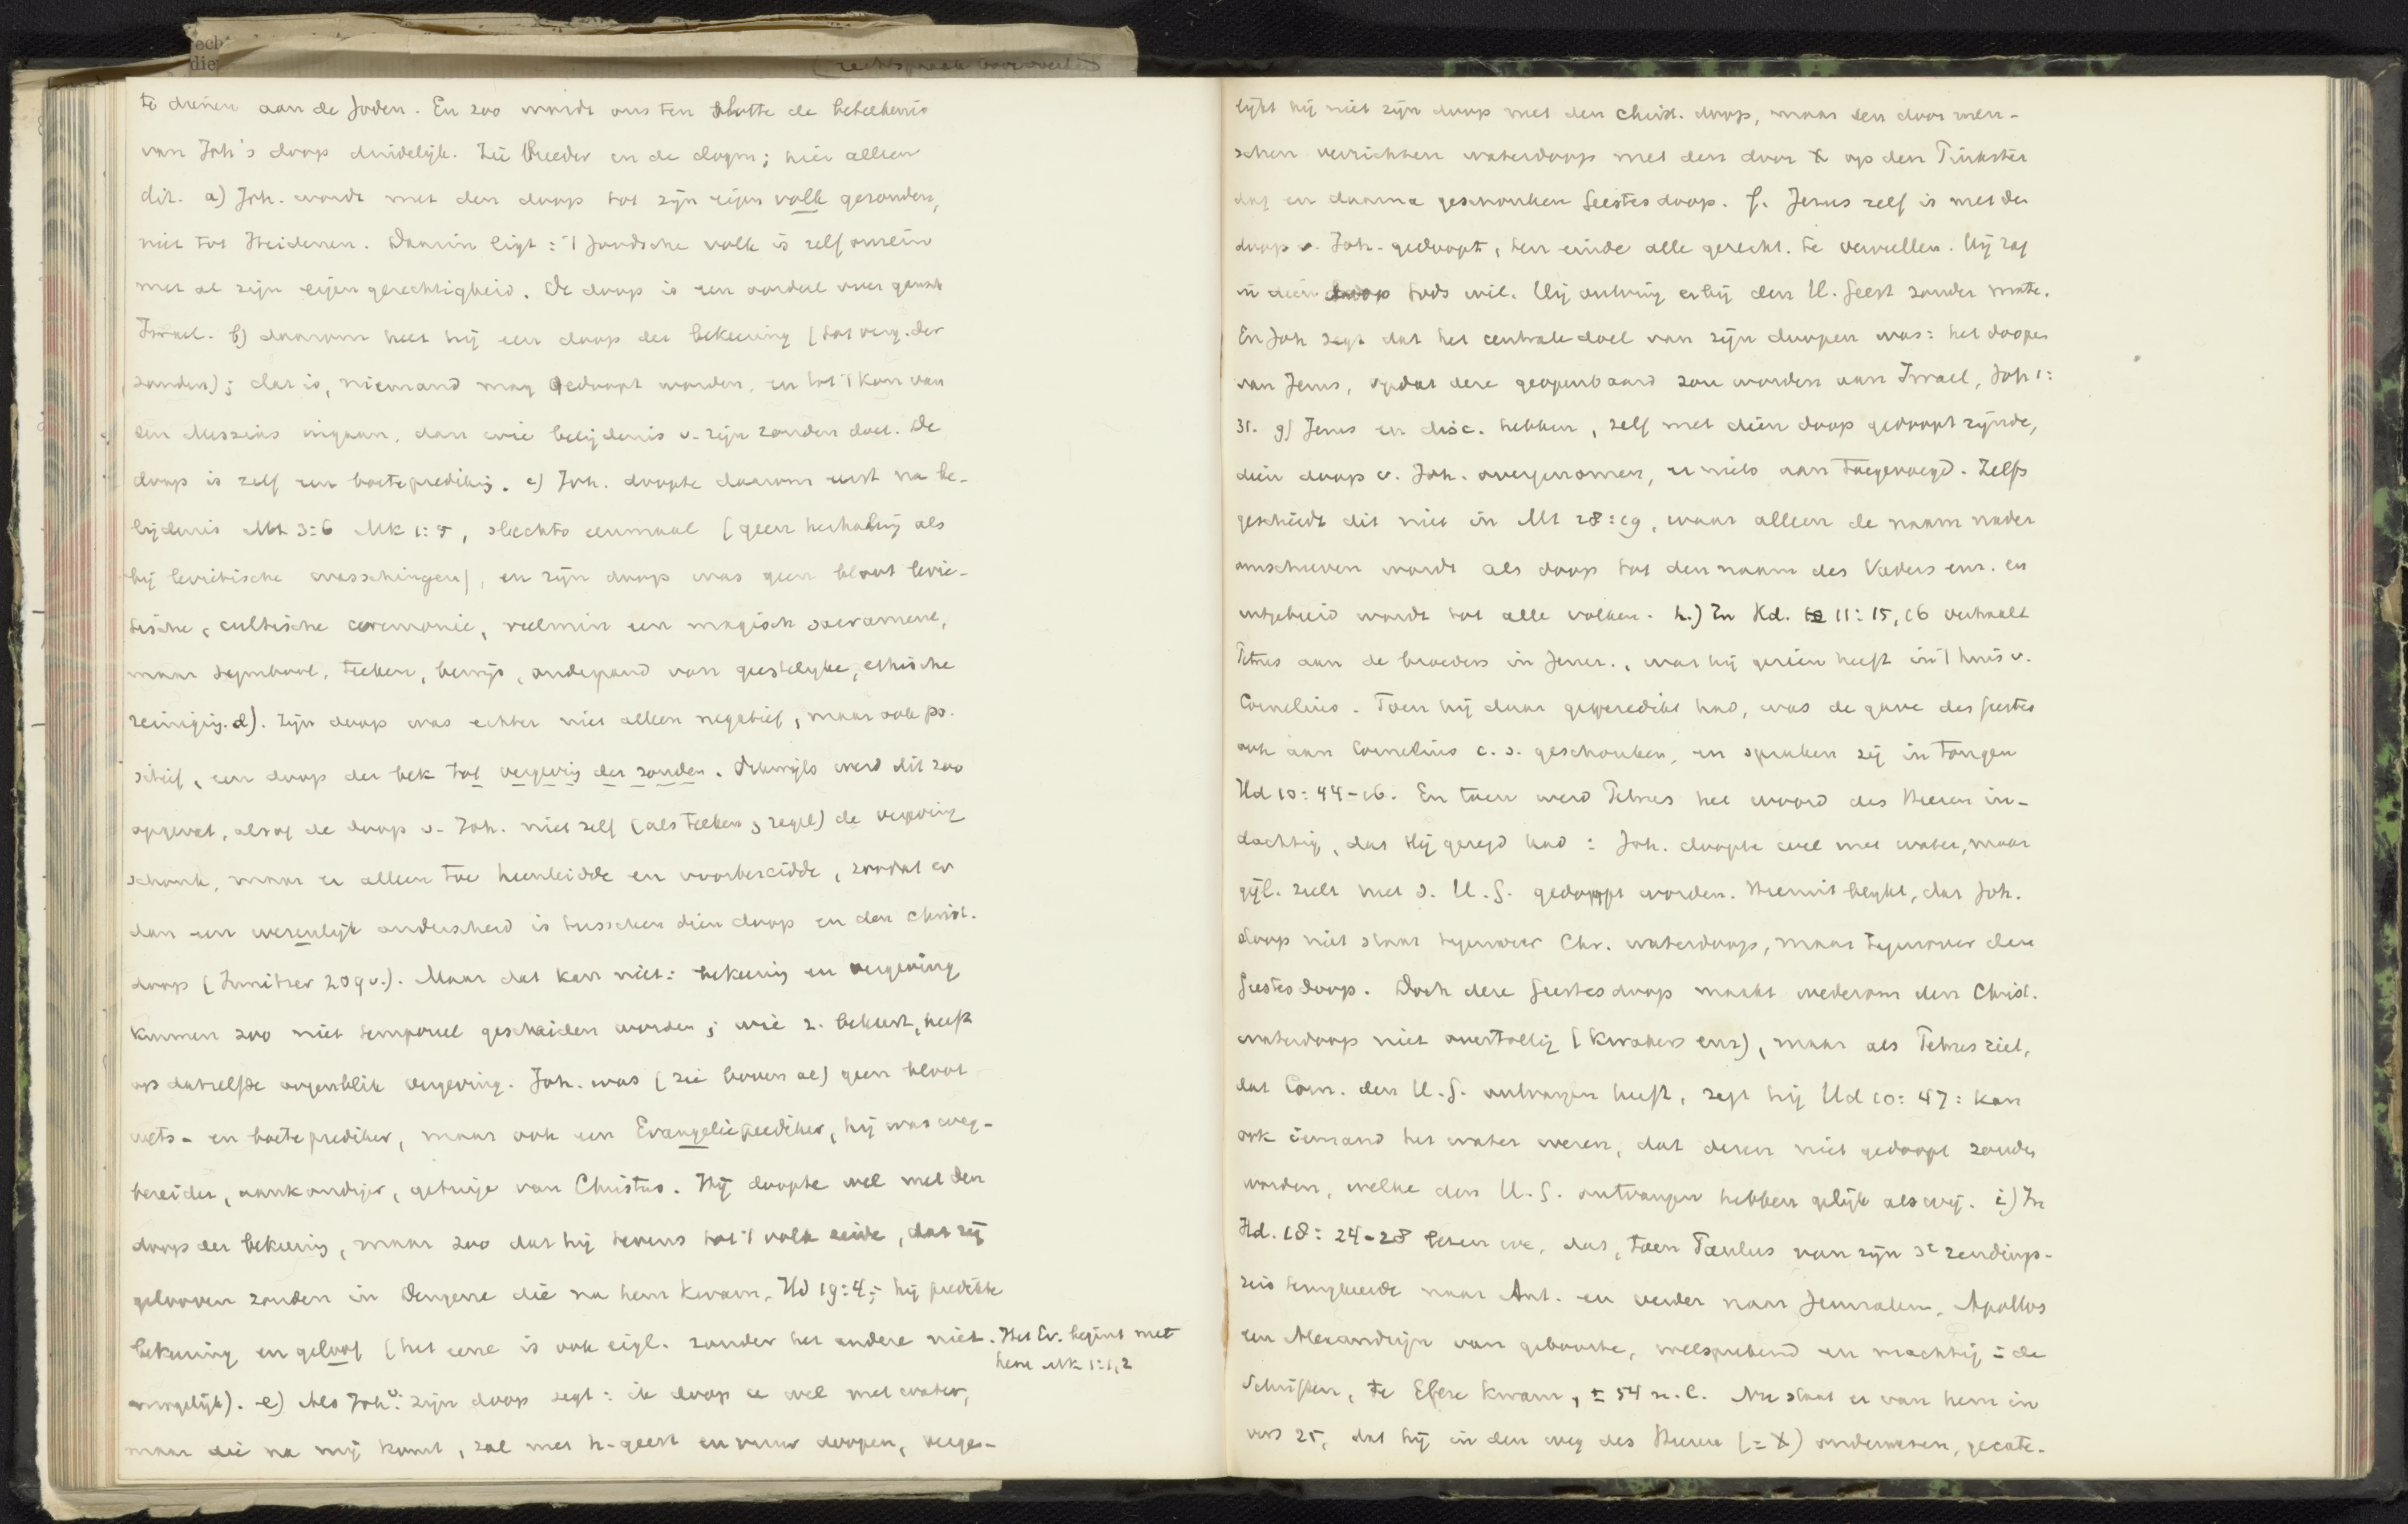 te dienen aan de Joden. En zoo wordt ons ten slotte de beteekenis
van Joh's doop duidelijk. Zie breeder in de dogm; hier alleen
dit. a) Joh. wordt met den doop tot zijn eigen volk gezonden,
niet tot Heidenen. Daarin ligt: 't Joodsche volk is zelf onrein
met al zijn eigengerechtigheid. De doop is een oordeel over gansch
Israel. b) daarom heet hij een doop der bekeering (tot verg. der
zonden); dat is, niemand mag gedoopt worden, en tot 't kon. van
den Messias ingaan, dan wie belijdenis v. zijn zonden doet. De
doop is zelf een boeteprediking. c) Joh. doopte daarom eerst na be-
lijdenis Mt 3:6 Mk 1:5, slechts eenmaal (geen herhaling als
bij levitische wasschingen), en zijn doop was geen bloot levi-
tische, cultische ceremonie, veelmin een magisch sacrament,
maar symbool, teeken, bewijs, onderpand van geestelijke, ethische
reiniging. d). Zijn doop was echter niet alleen negatief, maar ook po-
sitief, een doop der bek tot vergeving der zonden. Dikwijls werd dit zoo
opgevat, alsof de doop v. Joh. niet zelf (als teeken & zegel) de vergeving
schonk, maar er alleen toe heenleidde en voorbereidde, zoodat er
dan een wezenlijk onderscheid is tusschen dien doop en den christ.
doop (Innitzer 209 v.). Maar dat kan niet: bekeering en vergeving
kunnen zoo niet temporeel gescheiden worden; wie z. bekeert, heeft
op datzelfde oogenblik vergeving. Joh. was (zie boven al) geen bloot
wets- en boeteprediker, maar ook een Evangelieprediker, hij was weg-
bereider, aankondiger, getuige van Christus. Hij doopte wel met den
doop der bekeering, maar zoo dat hij tevens tot 't volk zeide, dat zij
gelooven zouden in Dengene die na hem kwam, Hd 19:4; hij predikte
bekeering en geloof (het eene is ook eigl. zonder het andere niet
mogelijk). Het Ev. begint met
hem Mk 1:1,2
e) Als Joh. v. zijn doop zegt: ik doop u wel met water,
maar die na mij komt, zal met h. geest en vuur doopen, verge-
lijkt hij niet zijn doop met den christ. doop, maar den door men-
schen verrichten waterdoop met den door X op den Pinkster
dag en daarna geschonken Geestesdoop. f. Jezus zelf is met den
doop v. Joh. gedoopt, ten einde alle gerecht. te vervullen. Hij zag
in dien doop Gods wil. Hij ontving erbij den H. Geest zonder mate.
En Joh zegt dat het centrale doel van zijn doopen was: het doopen
van Jezus, opdat deze geopenbaard zou worden aan Israel, Joh 1:
31. g) Jezus en disc. hebben, zelf met dien doop gedoopt zijnde,
dien doop v. Joh. overgenomen, er niets aan toegevoegd. Zelfs
geschiedt dit niet in Mt 28:19, waar alleen de naam nader
omschreven wordt als doop tot den naam des Vaders enz. en
uitgebreid wordt tot alle volken. h.) In Hd. 11:15,16 verhaalt
Petrus aan de broeders in Jeruz., wat hij gezien heeft in 't huis v.
Cornelius. Toen hij daar gepredikt had, was de gave des Geestes
ook aan Cornelius c.s. geschonken, en spraken zij in tongen
Hd 10:44-46. En toen werd Petrus het woord des Heeren in-
dachtig, dat Hij gezegd had: Joh. doopte wel met water, maar
gijl. zult met d. H.G. gedoopt worden. Hieruit blijkt, dat Joh.
doop niet staat tegenover Chr. waterdoop, maar tegenover den
Geestesdoop. Doch deze Geestesdoop maakt wederom den Christ.
waterdoop niet overtollig (kwakers enz), maar als Petrus ziet,
dat Corn. den H.G. ontvangen heeft, zegt hij Hd 10:47: kan
ook iemand het water weren, dat dezen niet gedoopt zouden
worden, welke den H.G. ontvangen hebben gelijk als wij. i) In
Hd. 18:24-28 lezen we, dat, toen Paulus van zijn 3e zendings-
reis terugkeerde naar Ant. en verder naar Jeruzalem, Apollos
een Alexandrijn van geboorte, welsprekend en machtig = de
Schriften, te Efeze kwam, ± 54 n.C. Nu staat er van hem in
vers 25, dat hij in den weg des Heeren (= X) onderwezen, gecate-